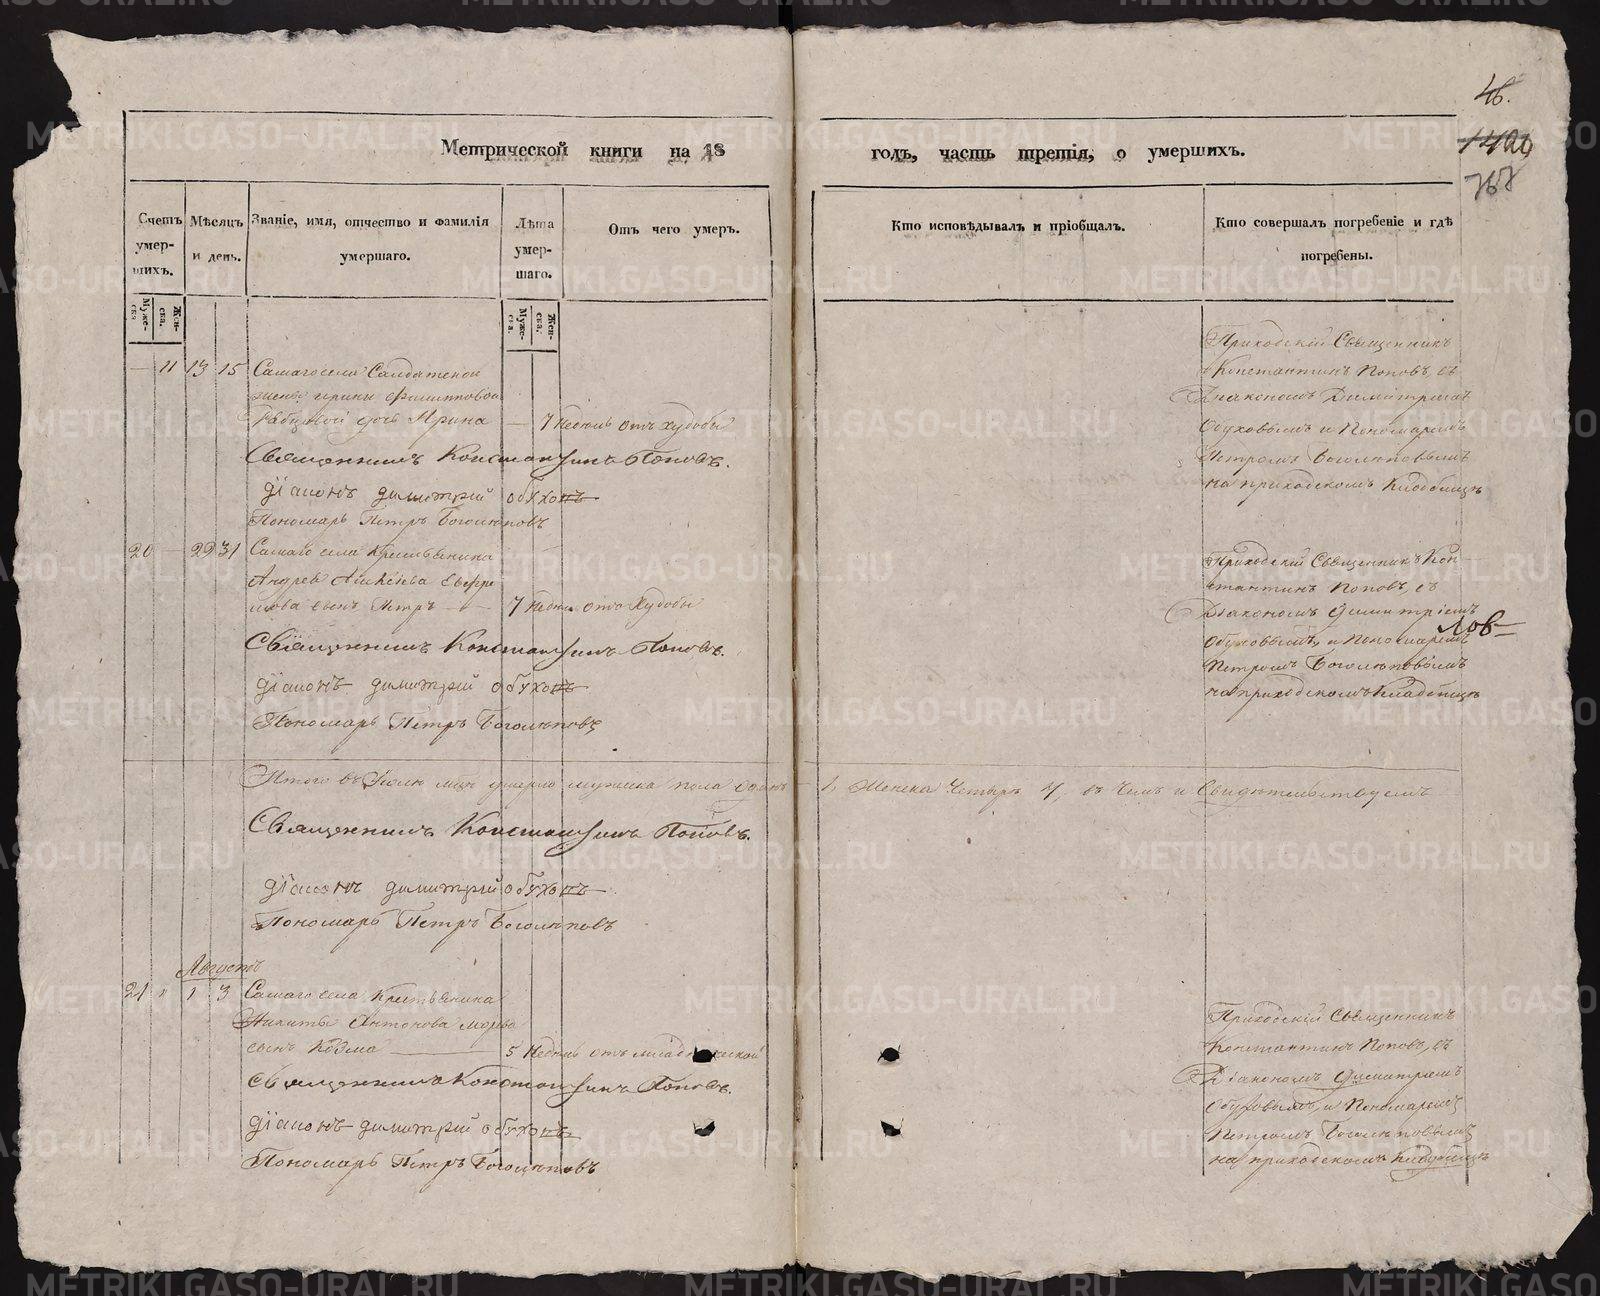 46.
1400
767
Метрической книги на 18 годъ, часть третія, о умершихъ.
Счетъ умер-шихъ.
Мѣсяцъ и день.
Званіе, имя, отчество и фамилія умершаго.
Лѣта умер-шаго.
Отъ чего умеръ.
Кто исповѣдывалъ и пріобщалъ.
Кто совершалъ погребеніе и гдѣ погребены.
Муже-ска
Жен-ска.
Муже-ска.
Жен-ска.
— 11 13 15 Самаго села Салдатской
жены Ирины Филипповой
дочь Ирина — 7 недѣль отъ худобы
Священникъ Константинъ Поповъ.
Діаконъ Димитрій Обуховъ
Пономарь Петръ Боголѣповъ
Приходскій Священникъ
Константинъ Поповъ, съ
Діакономъ Димитріемъ
Обуховымъ и Пономаремъ
Петромъ Боголѣповымъ
на приходскомъ Кладбищѣ
20 — 29 31 Самаго села Крестьянина
Андрея
сынъ Петръ — 7 недѣль отъ худобы
Священникъ Константинъ Поповъ.
Діаконъ Димитрій Обуховъ
Пономарь Петръ Боголѣповъ
Приходскій Священникъ Кон-
стантинъ Поповъ, съ
Діакономъ Димитріемъ
Обуховымъ, и Пономаремъ
Петромъ Боголѣповымъ
на приходскомъ Кладбищѣ
Итого въ Іюлѣ мцѣ умерло мужеска пола Одинъ 1, Женска Четыре 4, въ чемъ и Свидѣтельствуемъ
Священникъ Константинъ Поповъ.
Діаконъ Димитрій Обуховъ
Пономарь Петръ Боголѣповъ
Августъ
21 " 1 3 Самаго села Крестьянина
Никиты Антонова
сынъ Козма — 5 недѣль отъ младенческой
Священникъ Константинъ Поповъ.
Діаконъ Димитрій Обуховъ
Пономарь Петръ Боголѣповъ
Приходскій Священникъ
Константинъ Поповъ, съ
Діакономъ Димитріемъ
Обуховымъ, и Пономаремъ
Петромъ Боголѣповымъ
на приходскомъ Кладбищѣ
METRIKI.GASO-URAL.RU